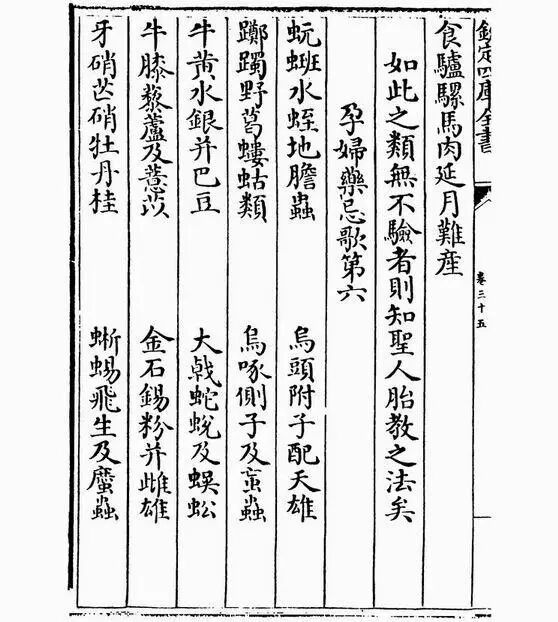 欽定四庫全書
卷三十五
食驢騾馬肉延月難産
如此之類無不驗者則知聖人胎教之法矣
孕婦藥忌歌第六
蚖水蛭地膽蟲　烏頭附子配天雄
躑躅野葛螻蛄類　烏啄側子及䖟蟲
牛黄水銀并巴豆　大戟蛇蛻及蜈蚣
牛膝藜蘆及薏苡　金石錫粉并雌雄
牙硝芒硝牡丹桂　蜥蜴飛生及䗪蟲